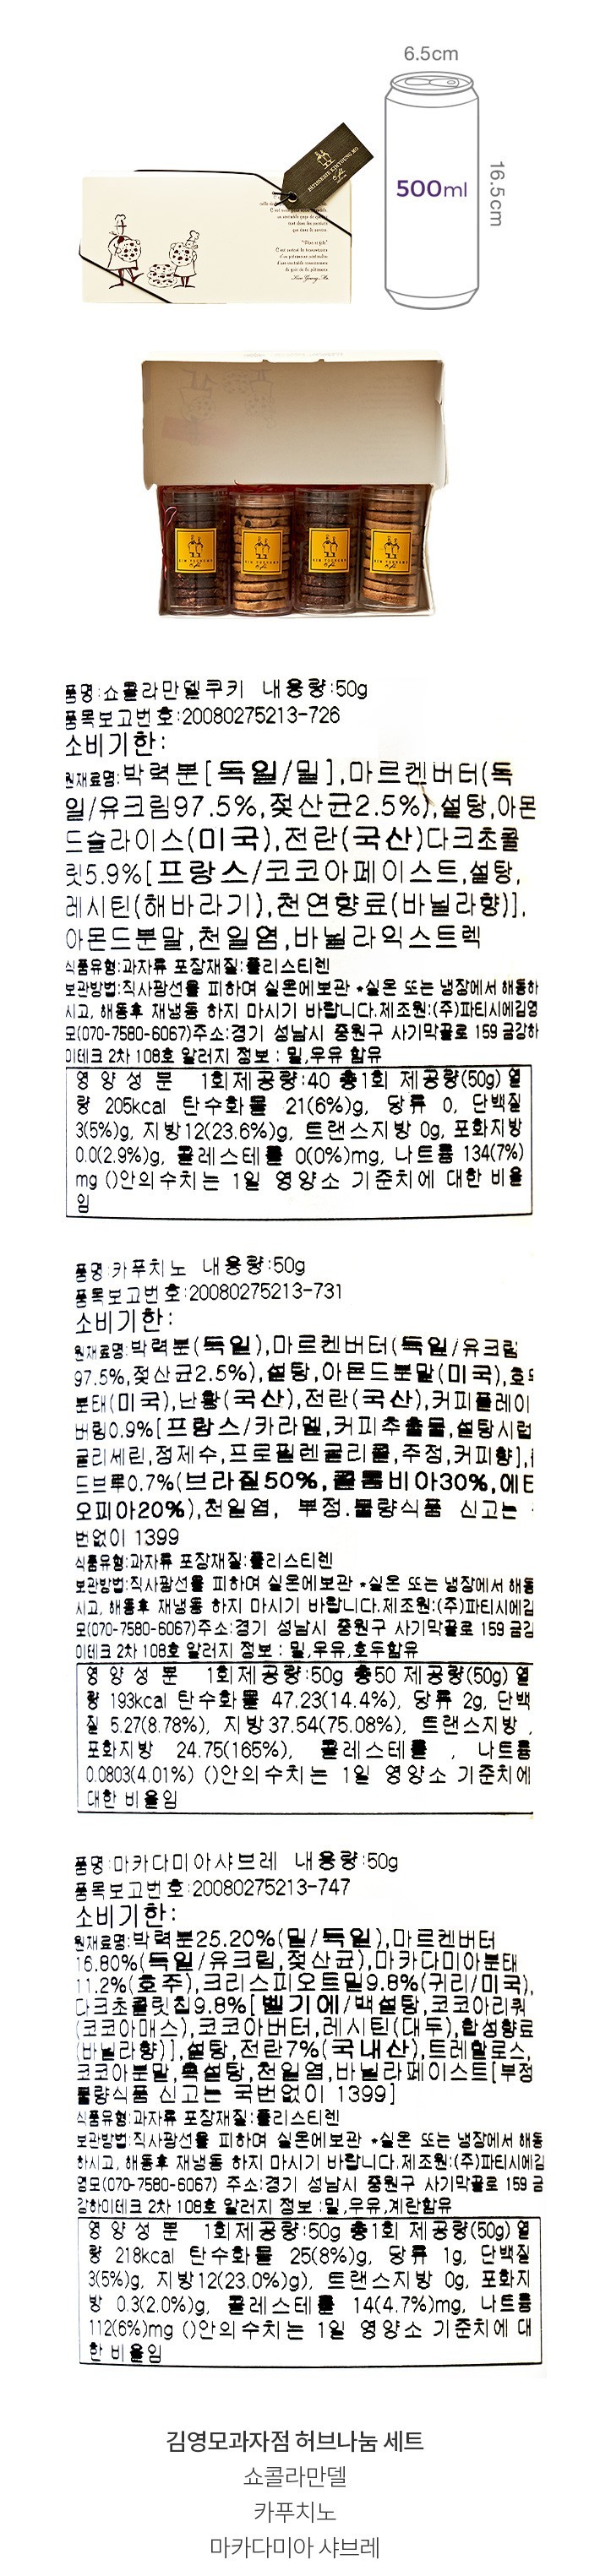 6.5cm
500ml
16.5cm
PATISSERIE KIM YOUNG MO
Kim Young Mo
품명:쇼콜라만델쿠키 내용량:50g
품목보고번호:20080275213-726
소비기한:
원재료명:박력분[독일/밀],마르켄버터(독
일/유크림97.5%,젖산균2.5%),설탕,아몬
드슬라이스(미국),전란(국산)다크초콜
릿5.9%[프랑스/코코아페이스트,설탕,
레시틴(해바라기),천연향료(바닐라향)],
아몬드분말,천일염,바닐라익스트렉
식품유형:과자류 포장재질:폴리스티렌
보관방법:직사광선을 피하여 실온에보관 *실온 또는 냉장에서 해동하
시고, 해동후 재냉동 하지 마시기 바랍니다.제조원:(주)파티시에김영
모(070-7580-6067)주소:경기 성남시 중원구 사기막골로 159 금강하
이테크 2차 108호 알러지 정보 : 밀,우유 함유
영양성분 1회제공량:40 총1회 제공량(50g) 열
량 205kcal 탄수화물 21(6%)g, 당류 0, 단백질
3(5%)g, 지방12(23.6%)g, 트랜스지방 0g, 포화지방
0.0(2.9%)g, 콜레스테롤 0(0%)mg, 나트륨 134(7%)
mg ()안의수치는 1일 영양소 기준치에 대한 비율
임
품명:카푸치노 내용량:50g
품목보고번호:20080275213-731
소비기한:
원재료명:박력분(독일),마르켄버터(독일/유크림
97.5%,젖산균2.5%),설탕,아몬드분말(미국),호두
분태(미국),난황(국산),전란(국산),커피플레이
버링0.9%[프랑스/카라멜,커피추출물,설탕시럽
글리세린,정제수,프로필렌글리콜,주정,커피향],
드브루0.7%(브라질50%,콜롬비아30%,에티
오피아20%),천일염, 부정.불량식품 신고는
번없이 1399
식품유형:과자류 포장재질:폴리스티렌
보관방법:직사광선을 피하여 실온에보관 *실온 또는 냉장에서 해동
시고, 해동후 재냉동 하지 마시기 바랍니다.제조원:(주)파티시에김
모(070-7580-6067)주소:경기 성남시 중원구 사기막골로 159 금강
이테크 2차 108호 알러지 정보 : 밀,우유,호두함유
영양성분 1회제공량:50g 총50 제공량(50g) 열
량 193kcal 탄수화물 47.23(14.4%), 당류 2g, 단백
질 5.27(8.78%), 지방37.54(75.08%), 트랜스지방 ,
포화지방 24.75(165%), 콜레스테롤 , 나트륨
0.0803(4.01%) ()안의수치는 1일 영양소 기준치에
대한 비율임
품명:마카다미아샤브레 내용량:50g
품목보고번호:20080275213-747
소비기한:
원재료명:박력분25.20%(밀/독일),마르켄버터
16.80%(독일/유크림,젖산균),마카다미아분태
11.2%(호주),크리스피오트밀9.8%(귀리/미국),
다크초콜릿칩9.8%[벨기에/백설탕,코코아리쿼
(코코아매스),코코아버터,레시틴(대두),합성향료
(바닐라향)],설탕,전란7%(국내산),트레할로스,
코코아분말,흑설탕,천일염,바닐라페이스트[부정
불량식품 신고는 국번없이 1399]
식품유형:과자류 포장재질:폴리스티렌
보관방법:직사광선을 피하여 실온에보관 *실온 또는 냉장에서 해동
하시고, 해동후 재냉동 하지 마시기 바랍니다.제조원:(주)파티시에김
영모(070-7580-6067) 주소:경기 성남시 중원구 사기막골로 159 금
강하이테크 2차 108호 알러지 정보 :밀,우유,계란함유
영양성분 1회제공량:50g 총1회 제공량(50g) 열
량 218kcal 탄수화물 25(8%)g, 당류 1g, 단백질
3(5%)g, 지방12(23.0%)g), 트랜스지방 0g, 포화지
방 0.3(2.0%)g, 콜레스테롤 14(4.7%)mg, 나트륨
112(6%)mg ()안의수치는 1일 영양소 기준치에 대
한 비율임
김영모과자점 허브나눔 세트
쇼콜라만델
카푸치노
마카다미아 샤브레